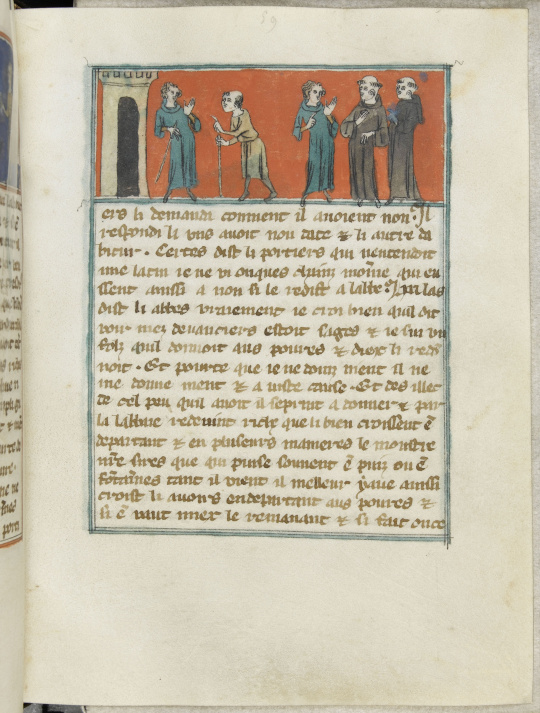 59
ers li demanda coment il avoient non. Il
respondi li uns avoit non date & li autre da
bitur. Certes dist li portiers qui nentendoit
mie latin ie ne vi onques moine qui eu
ssent ainssi a non si le redist a labbe. Ha las
dist li abbes vraiement ie croi bien quil dit
voir mez devanciers estoit sages & ie sui un
folz quil donnoit aus povres & diex li ren
noit. Et pource que ie ne doing nient il ne
me donne nient & a iuste cause. Et des illec
de cel peu quil avoit il seprint a donner & par
la labbaie redevint riche que li bien croissent ē
departant & en pluseurs manieres le monstre
nr̄e sires que qui puise souvent ē puiz ou ē
fōtainnes tant il vient il melleur yaue ainssi
croist li avoirs en departant aus povres &
si ē vaut miex le remanant & si fait